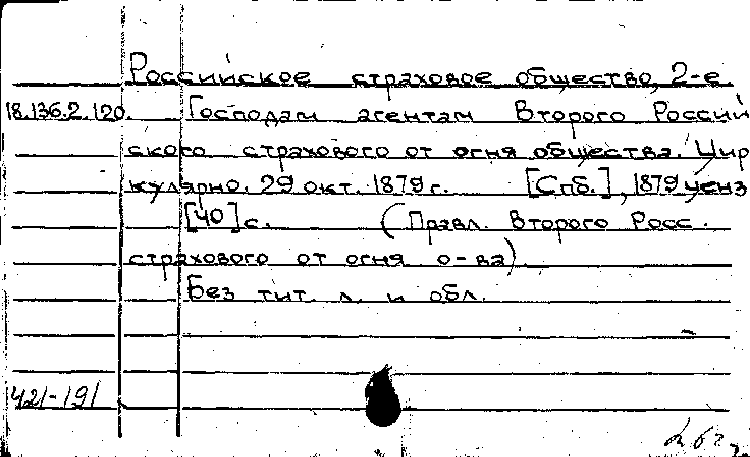 Российское страховое общество, 2-е.
18.136.2.120. Господам агентам Второго Россий
ского страхового от огня общества. Цир
кулярно. 29 окт. 1879 г. [Спб.], 1879 ценз
[40] с. (Правл. Второго Росс.
страхового от огня о-ва).
Без тит. л. и обл.
421-191